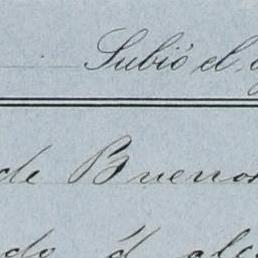 Subió el
de Buenos
do d alca